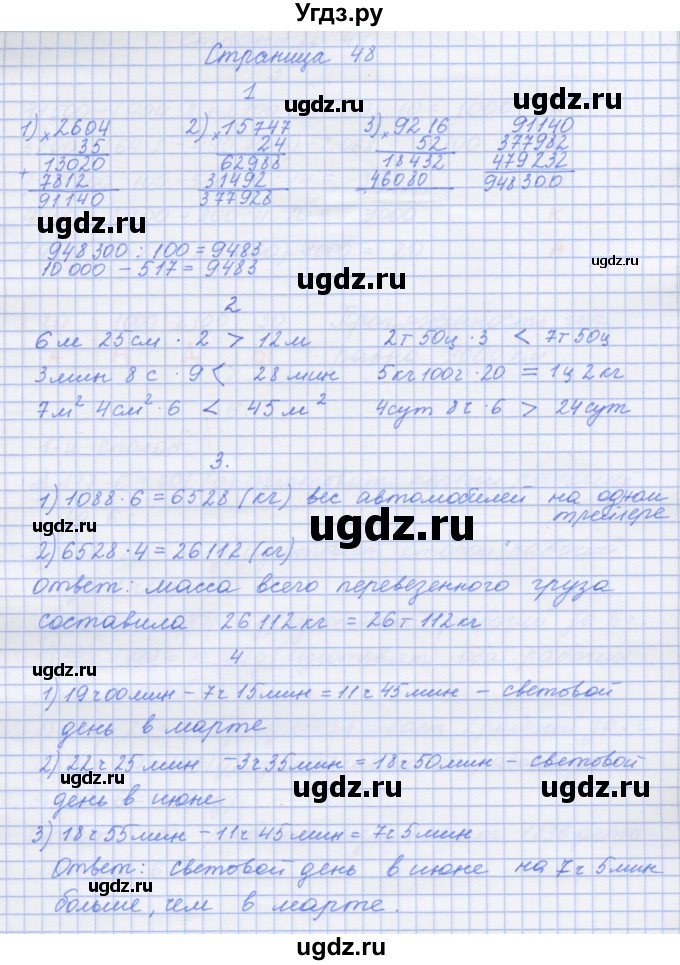 Угдз.ру
Страница 48
1
1) × 2604
35
+ 13020
7812
91140
2) × 15747
24
62988
31492
377928
3) × 9216
52
18432
46080
91140
377982
479232
948300
ugdz.ru
ugdz.ru
ugdz.ru
948300 : 100 = 9483
10000 - 517 = 9483
2
6м 25см · 2 > 12м
2т 50ц · 3 < 7т 50ц
3мин 8с · 9 < 28мин
5кг 100г · 20 = 1ц 2кг
7м² 4см² · 6 < 45м²
4сут 8ч · 6 > 24сут
3.
1) 1088 · 6 = 6528 (кг) вес автомобилей на одном
трейлере
ugdz.ru
ugdz.ru
ugdz.ru
2) 6528 · 4 = 26112 (кг)
Ответ: масса всего перевезенного груза
составила 26112кг = 26т 112кг
4
ugdz.ru
1) 19ч 00мин - 7ч 15мин = 11ч 45мин - световой
день в марте
2) 22ч 25мин - 3ч 35мин = 18ч 50мин - световой
ugdz.ru
ugdz.ru
ugdz.ru
день в июне
3) 18ч 55мин - 11ч 45мин = 7ч 5мин
Ответ: световой день в июне на 7ч 5мин
ugdz.ru
больше, чем в марте.
ugdz.ru